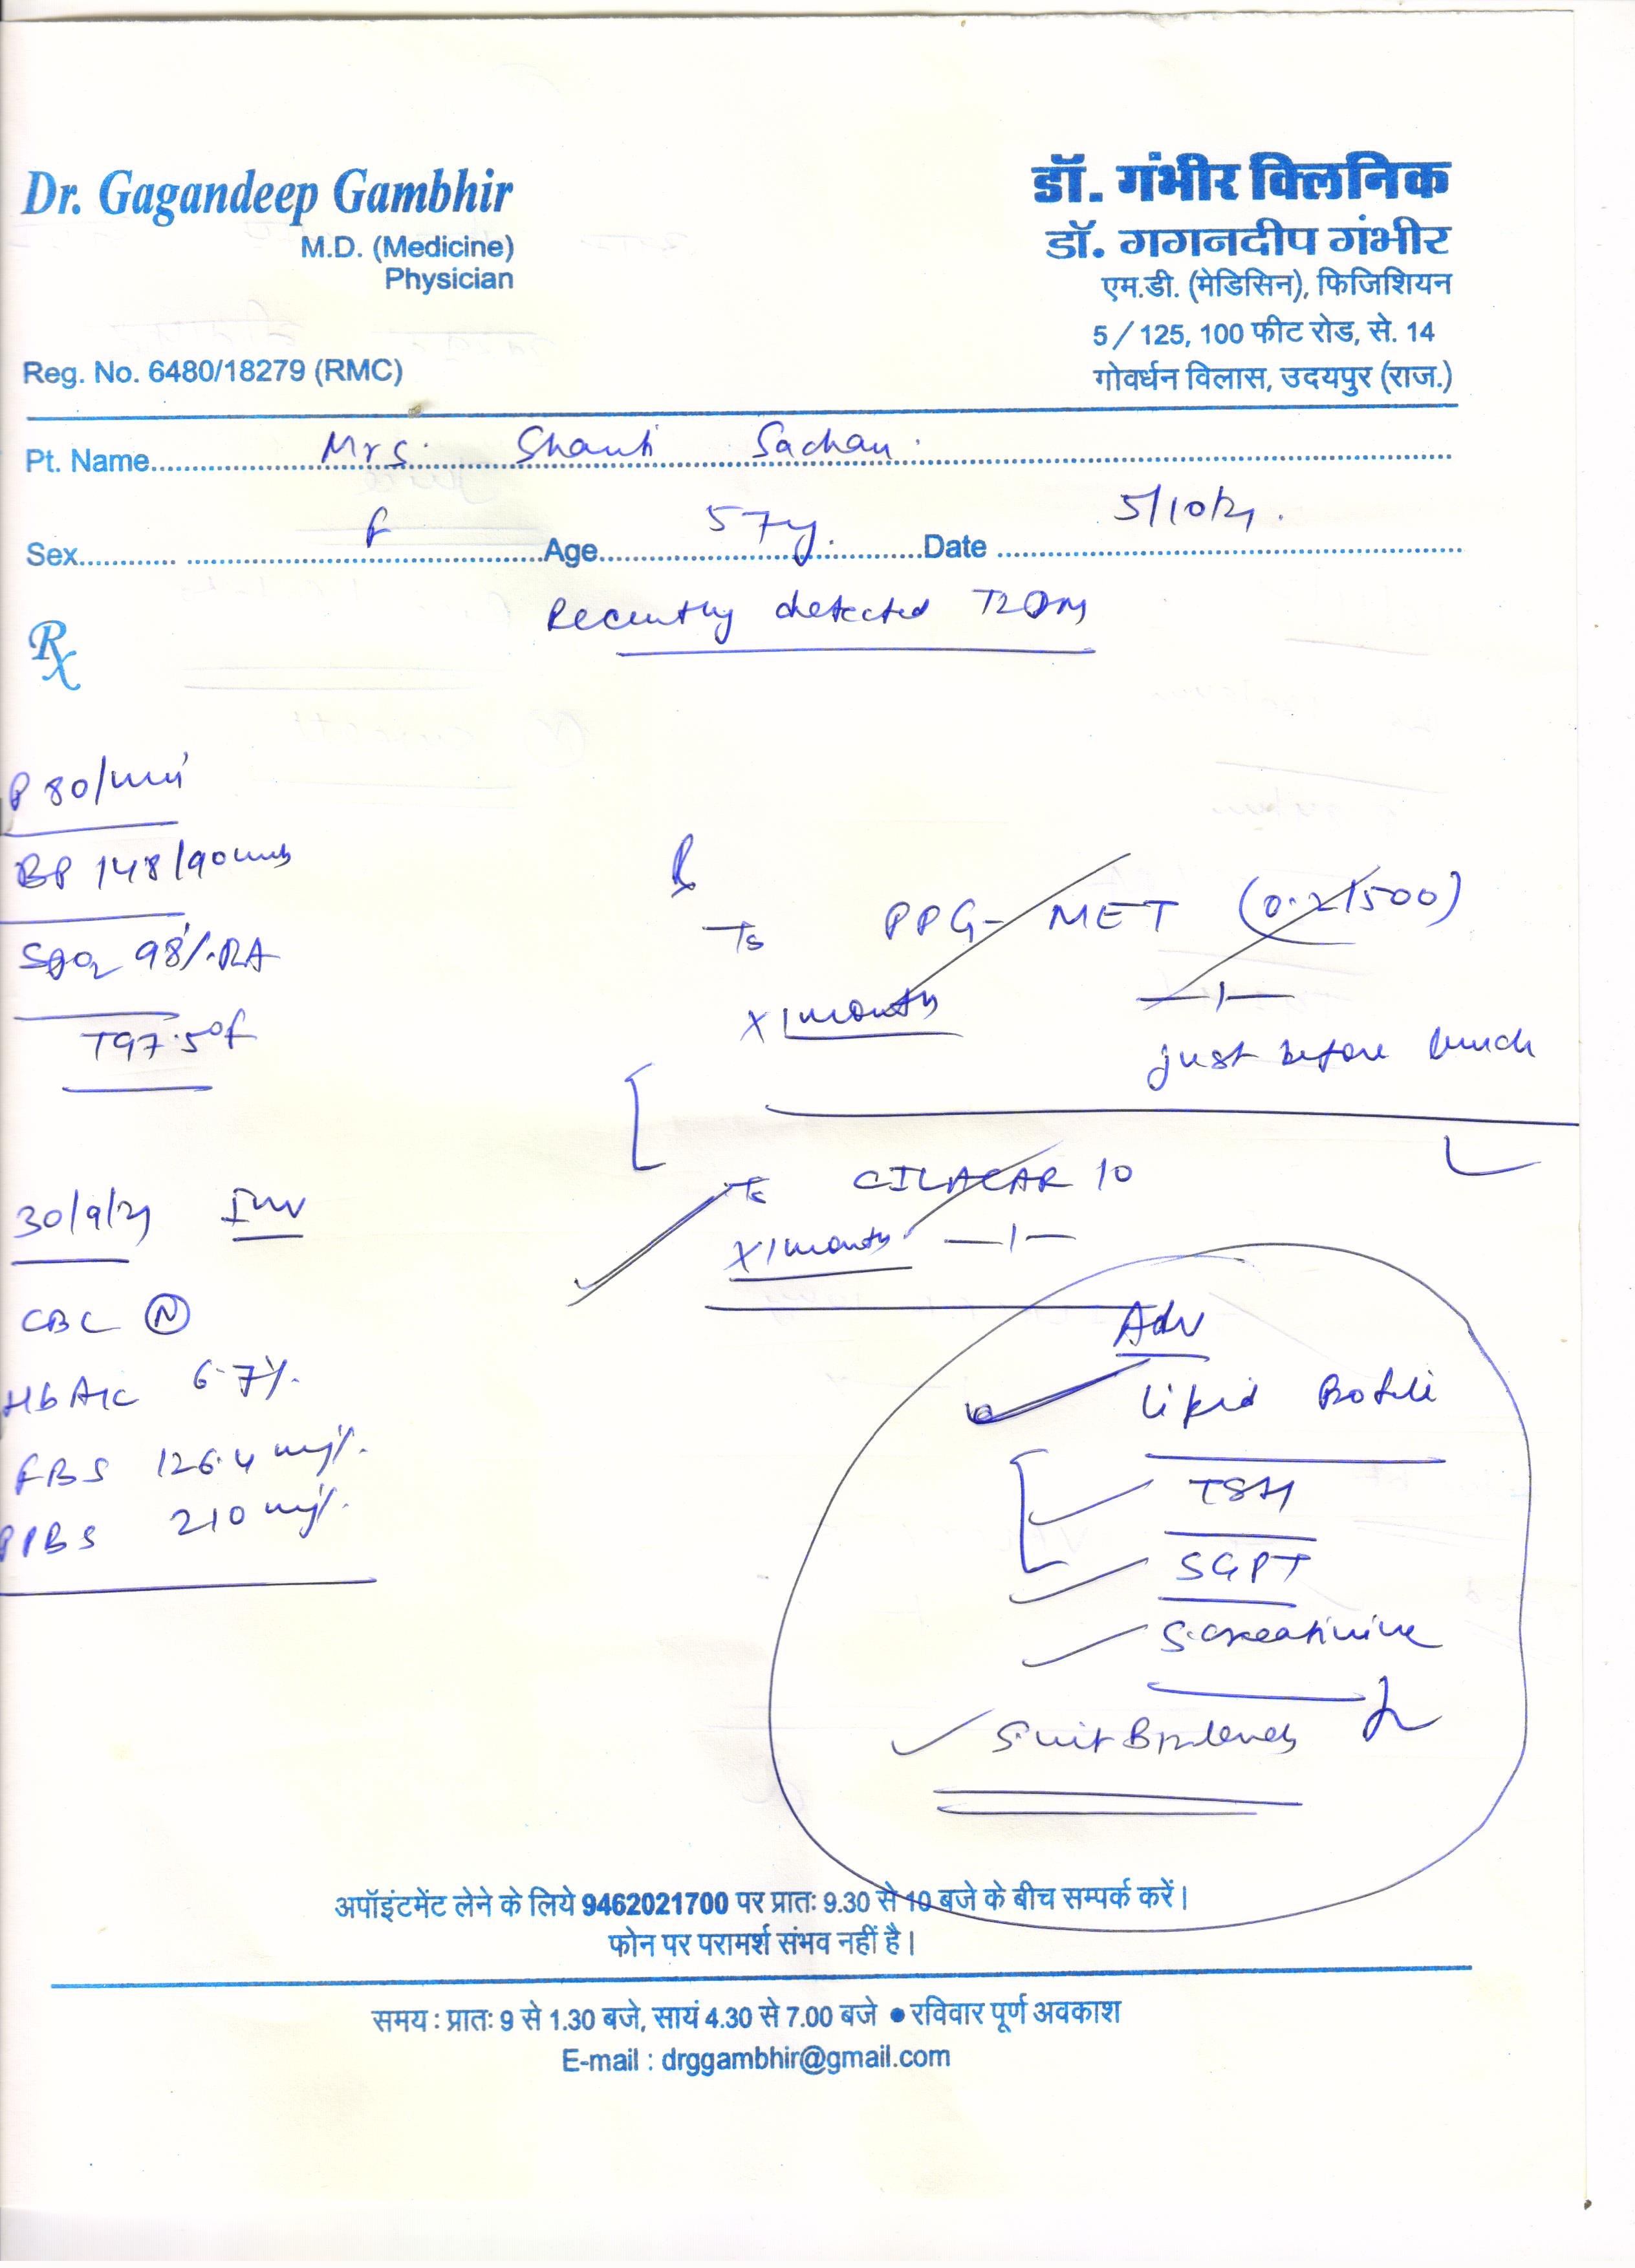 Dr. Gagandeep Gambhir
M.D. (Medicine)
Physician
Reg. No. 6480/18279 (RMC)
डॉ. गंभीर क्लिनिक
डॉ. गगनदीप गंभीर
एम.डी. (मेडिसिन), फिजिशियन
5/125, 100 फीट रोड, से. 14
गोवर्धन विलास, उदयपुर (राज.)
Pt. Name Mrs. Shanti Sachan.
Sex F Age 57y. Date 5/10/21.
Recently detected T2DM
Rx
P 80/min
BP 148/90
SpO2 98%.RA
T97.5°f
30/9/21 Inv
CBC N
HbA1c 6.7%.
FBS 126.4 mg%.
PPBS 210 mg%.
Rx
PPG-MET (0.2/500)
X 1 month —1—
just before lunch
CILACAR 10
X 1 month —1—
Adv
Lipid
TSH
SGPT
S.creatinine
S.vit B12 levels
अपॉइंटमेंट लेने के लिये 9462021700 पर प्रातः 9.30 से 10 बजे के बीच सम्पर्क करें।
फोन पर परामर्श संभव नहीं है।
समय : प्रातः 9 से 1.30 बजे, सायं 4.30 से 7.00 बजे ● रविवार पूर्ण अवकाश
E-mail : drggambhir@gmail.com